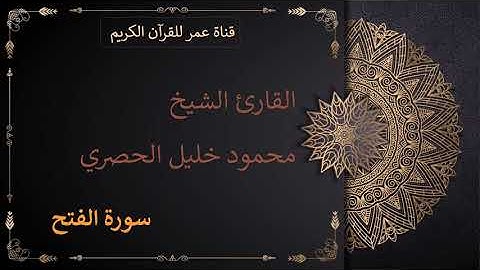 قناة عمر للقرآن الكريم
القارئ الشيخ
محمود خليل الحصري
سورة الفتح